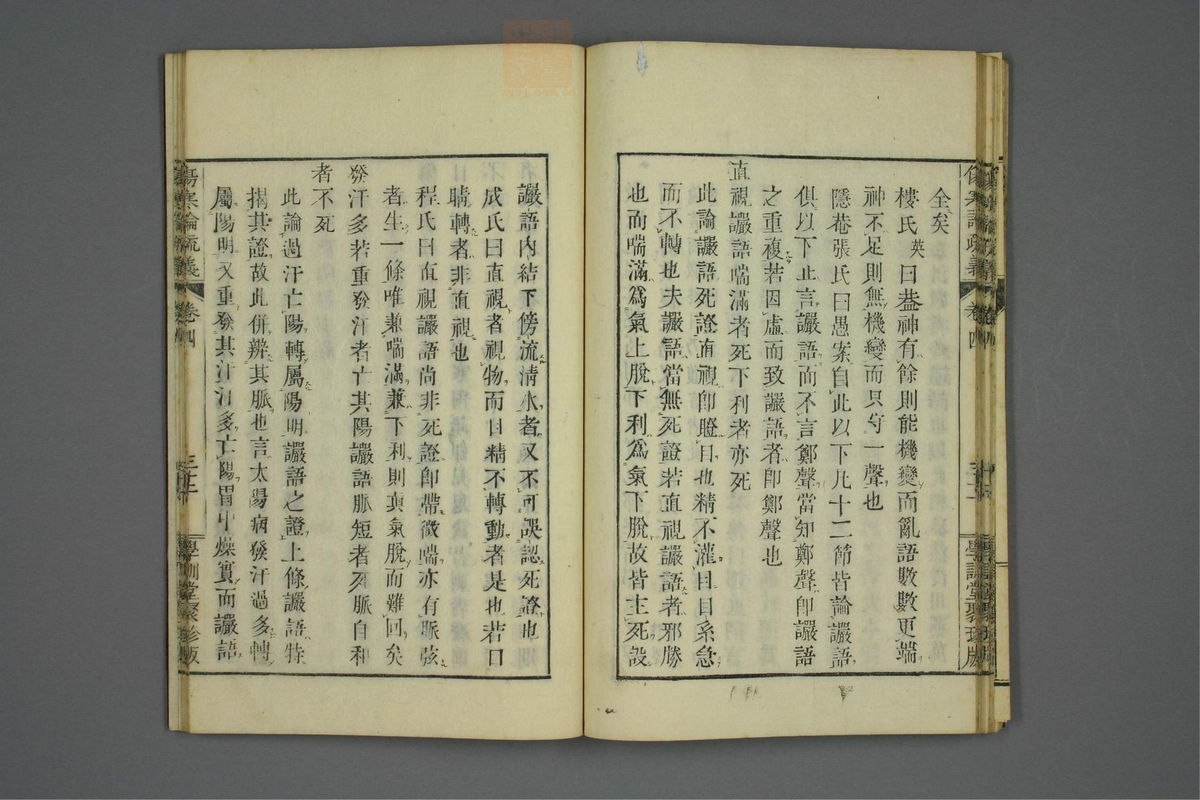 全矣
樓氏英曰蓋神有餘則能機變而亂語數數更端
神不足則無機變而只守一聲也
隱菴張氏曰愚案自此以下凡十二節皆論讝語
俱以下止言讝語而不言鄭聲當知鄭聲卽讝語
之重複若因虛而致讝語者卽鄭聲也
直視讝語喘滿者死下利者亦死
此論讝語死證直視卽瞪目也精不灌目目系急
而不轉也夫讝語當無死證若直視讝語者邪勝
也而喘滿爲氣上脫下利爲氣下脫故皆主死設
讝語內結下傍流清水者又不可誤認死證也
成氏曰直視者視物而目精不轉動者是也若目
睛轉者非直視也
程氏曰直視讝語尚非死證卽帶微喘亦有脈弦
者生一條唯兼喘滿兼下利則眞氣脫而難回矣
發汗多若重發汗者亡其陽讝語脈短者死脈自和
者不死
此論過汗亡陽轉屬陽明讝語之證上條讝語特
揭其證故此併辨其脈也言太陽病發汗過多轉
屬陽明又重發其汗汗多亡陽胃中燥實而讝語
傷寒論疏義
卷四
學訓堂聚珍版